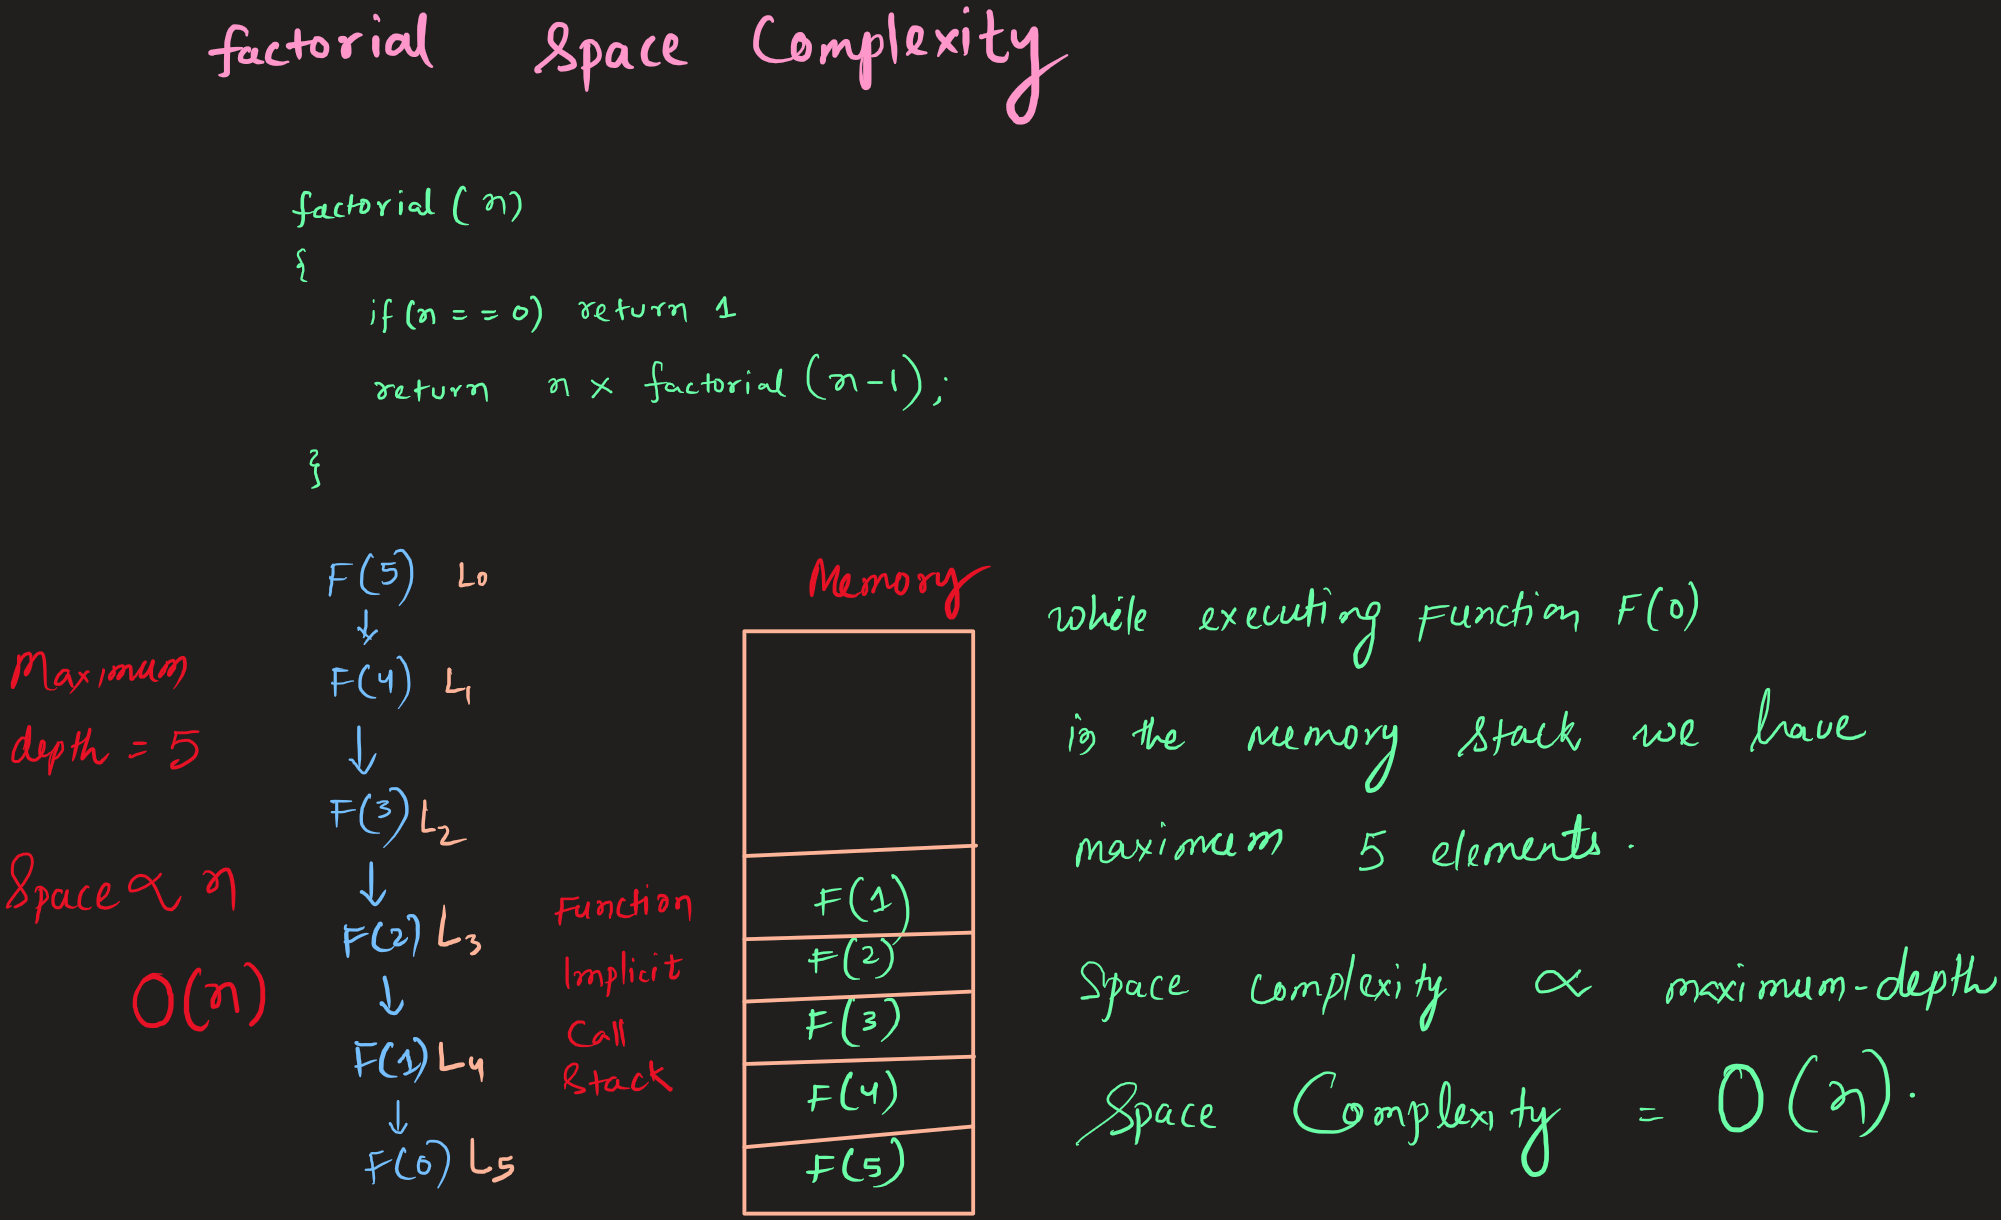 factorial Space Complexity
factorial (n)
{
if (n == 0) return 1
return n × factorial (n-1);
}
F(5) L0
↓
F(4) L1
↓
F(3) L2
↓
F(2) L3
↓
F(1) L4
↓
F(0) L5
Maximum
depth = 5
Space ∝ n
O(n)
Function
Implicit
Call
Stack
Memory
F(1)
F(2)
F(3)
F(4)
F(5)
while executing Function F(0)
in the memory stack we have
maximum 5 elements.
Space complexity ∝ maximum-depth
Space Complexity = O(n).